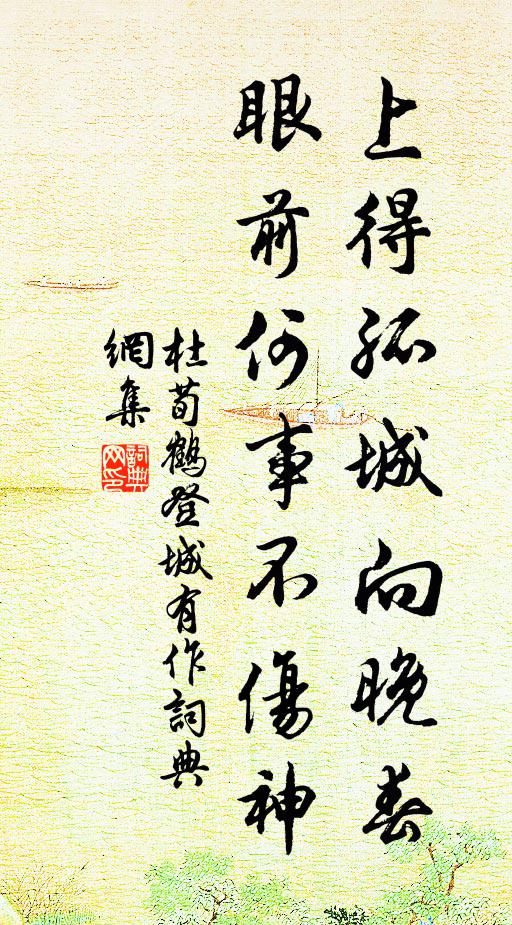 上得孤城向晚春
眼前何事不傷神
杜荀鶴登城有作詞典
網集
詞典網印